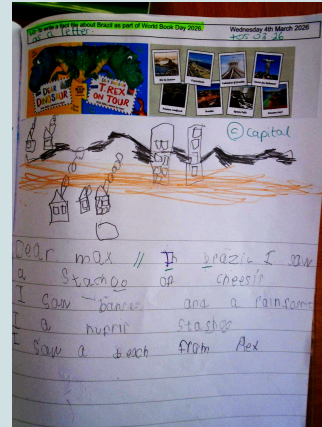 LO: to write a fact file about Brazil as part of World Book Day 2026.
Wednesday 4th March 2026
as a letter.
DEAR DINOSAUR
T. REX ON TOUR
© Capital
Dear max // In brazil I saw
a Stachoo of cheesis
I saw and a rainforr
I a stashoo
I saw a beach from Rex